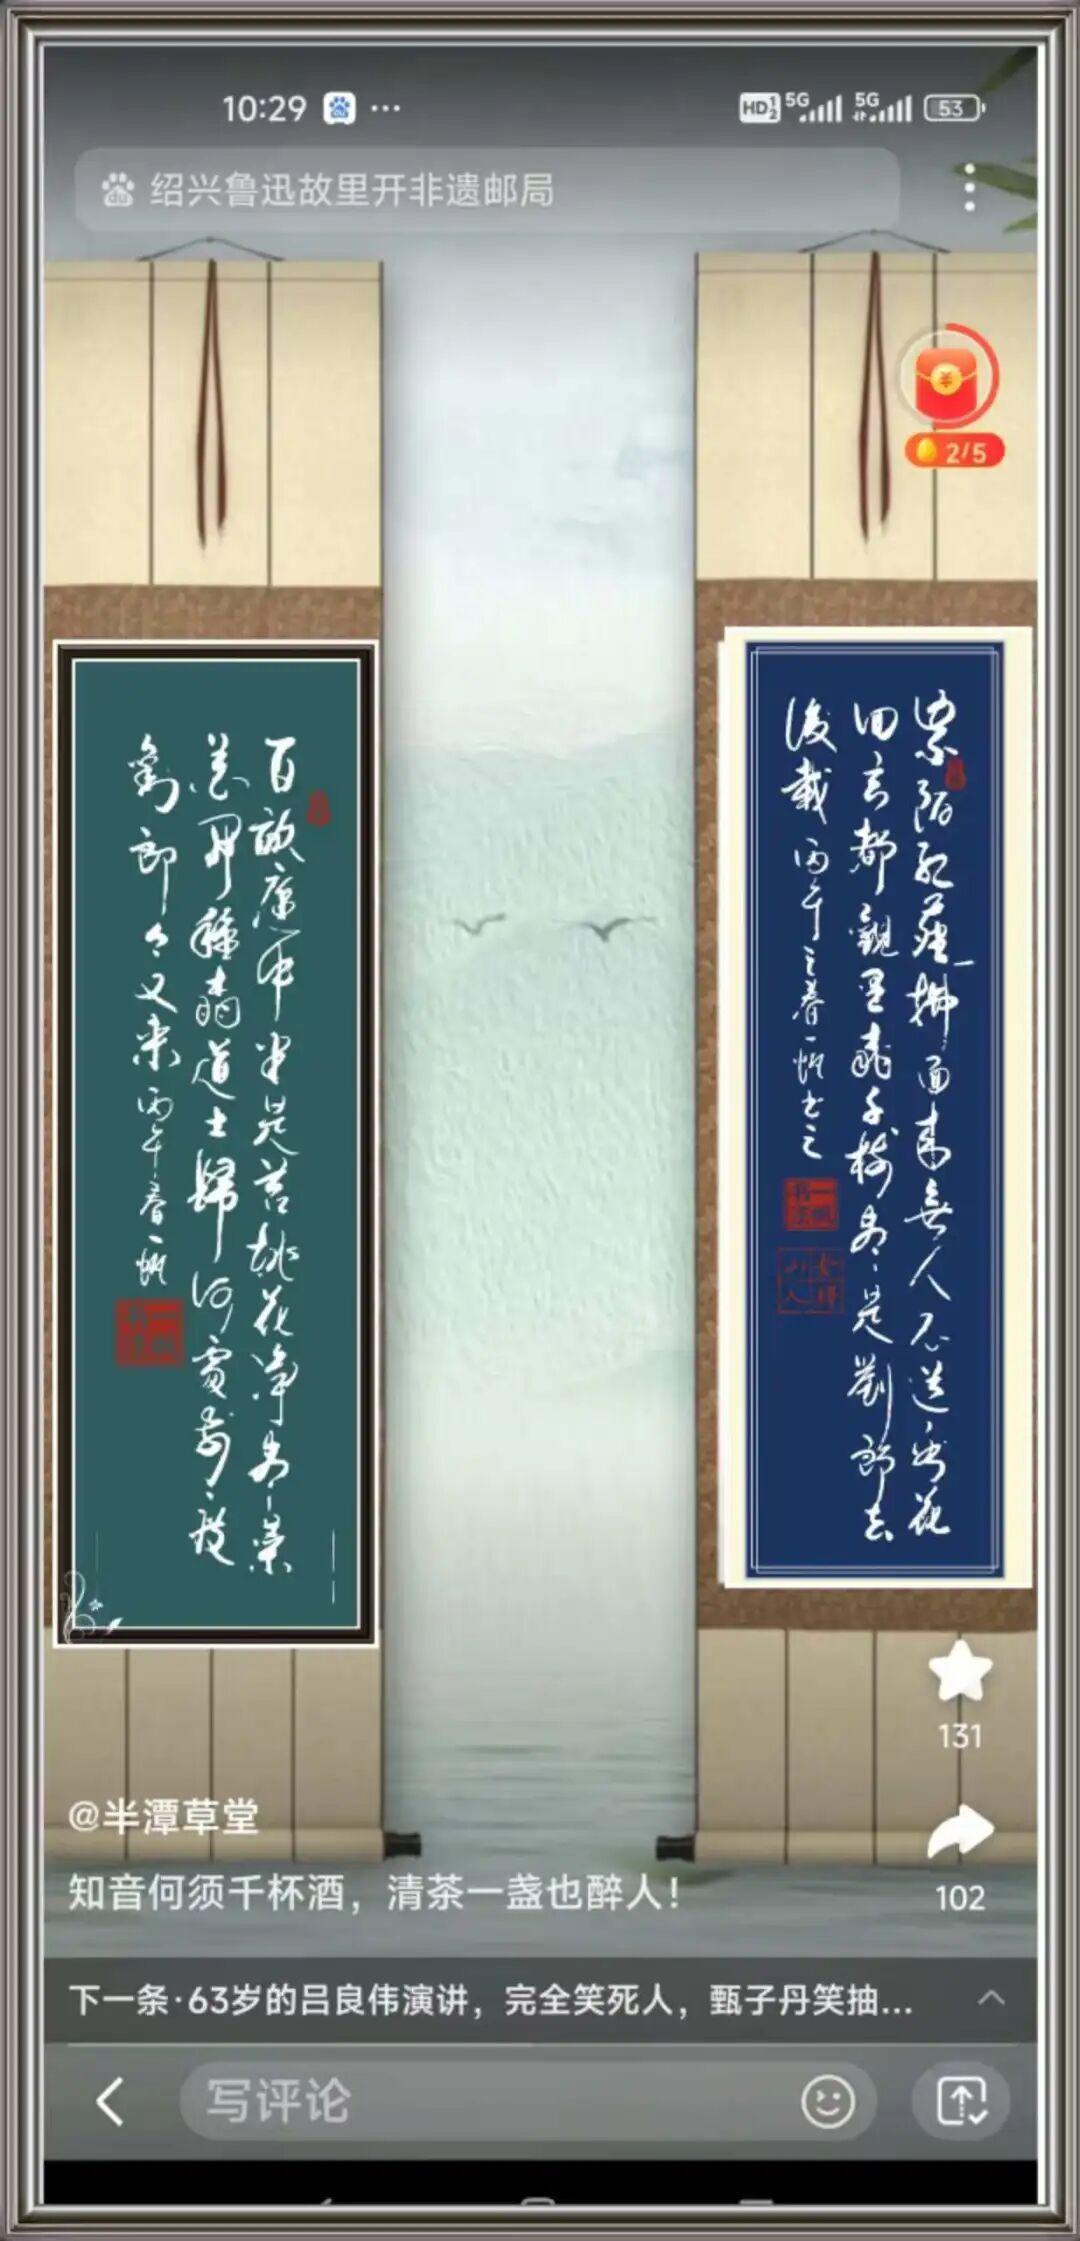 10:29
HD 1 2 5G 5G 53
绍兴鲁迅故里开非遗邮局
2/5
紫陌紅塵拂面來無人不道看花
回玄都觀里桃千樹尽是劉郎去
後載 丙午之春一帆书之
百畝庭中半是苔桃花净尽菜
花開種桃道士歸何處前度
劉郎今又来 丙午春一帆
131
@半潭草堂
102
知音何须千杯酒，清茶一盏也醉人！
下一条·63岁的吕良伟演讲，完全笑死人，甄子丹笑抽...
写评论